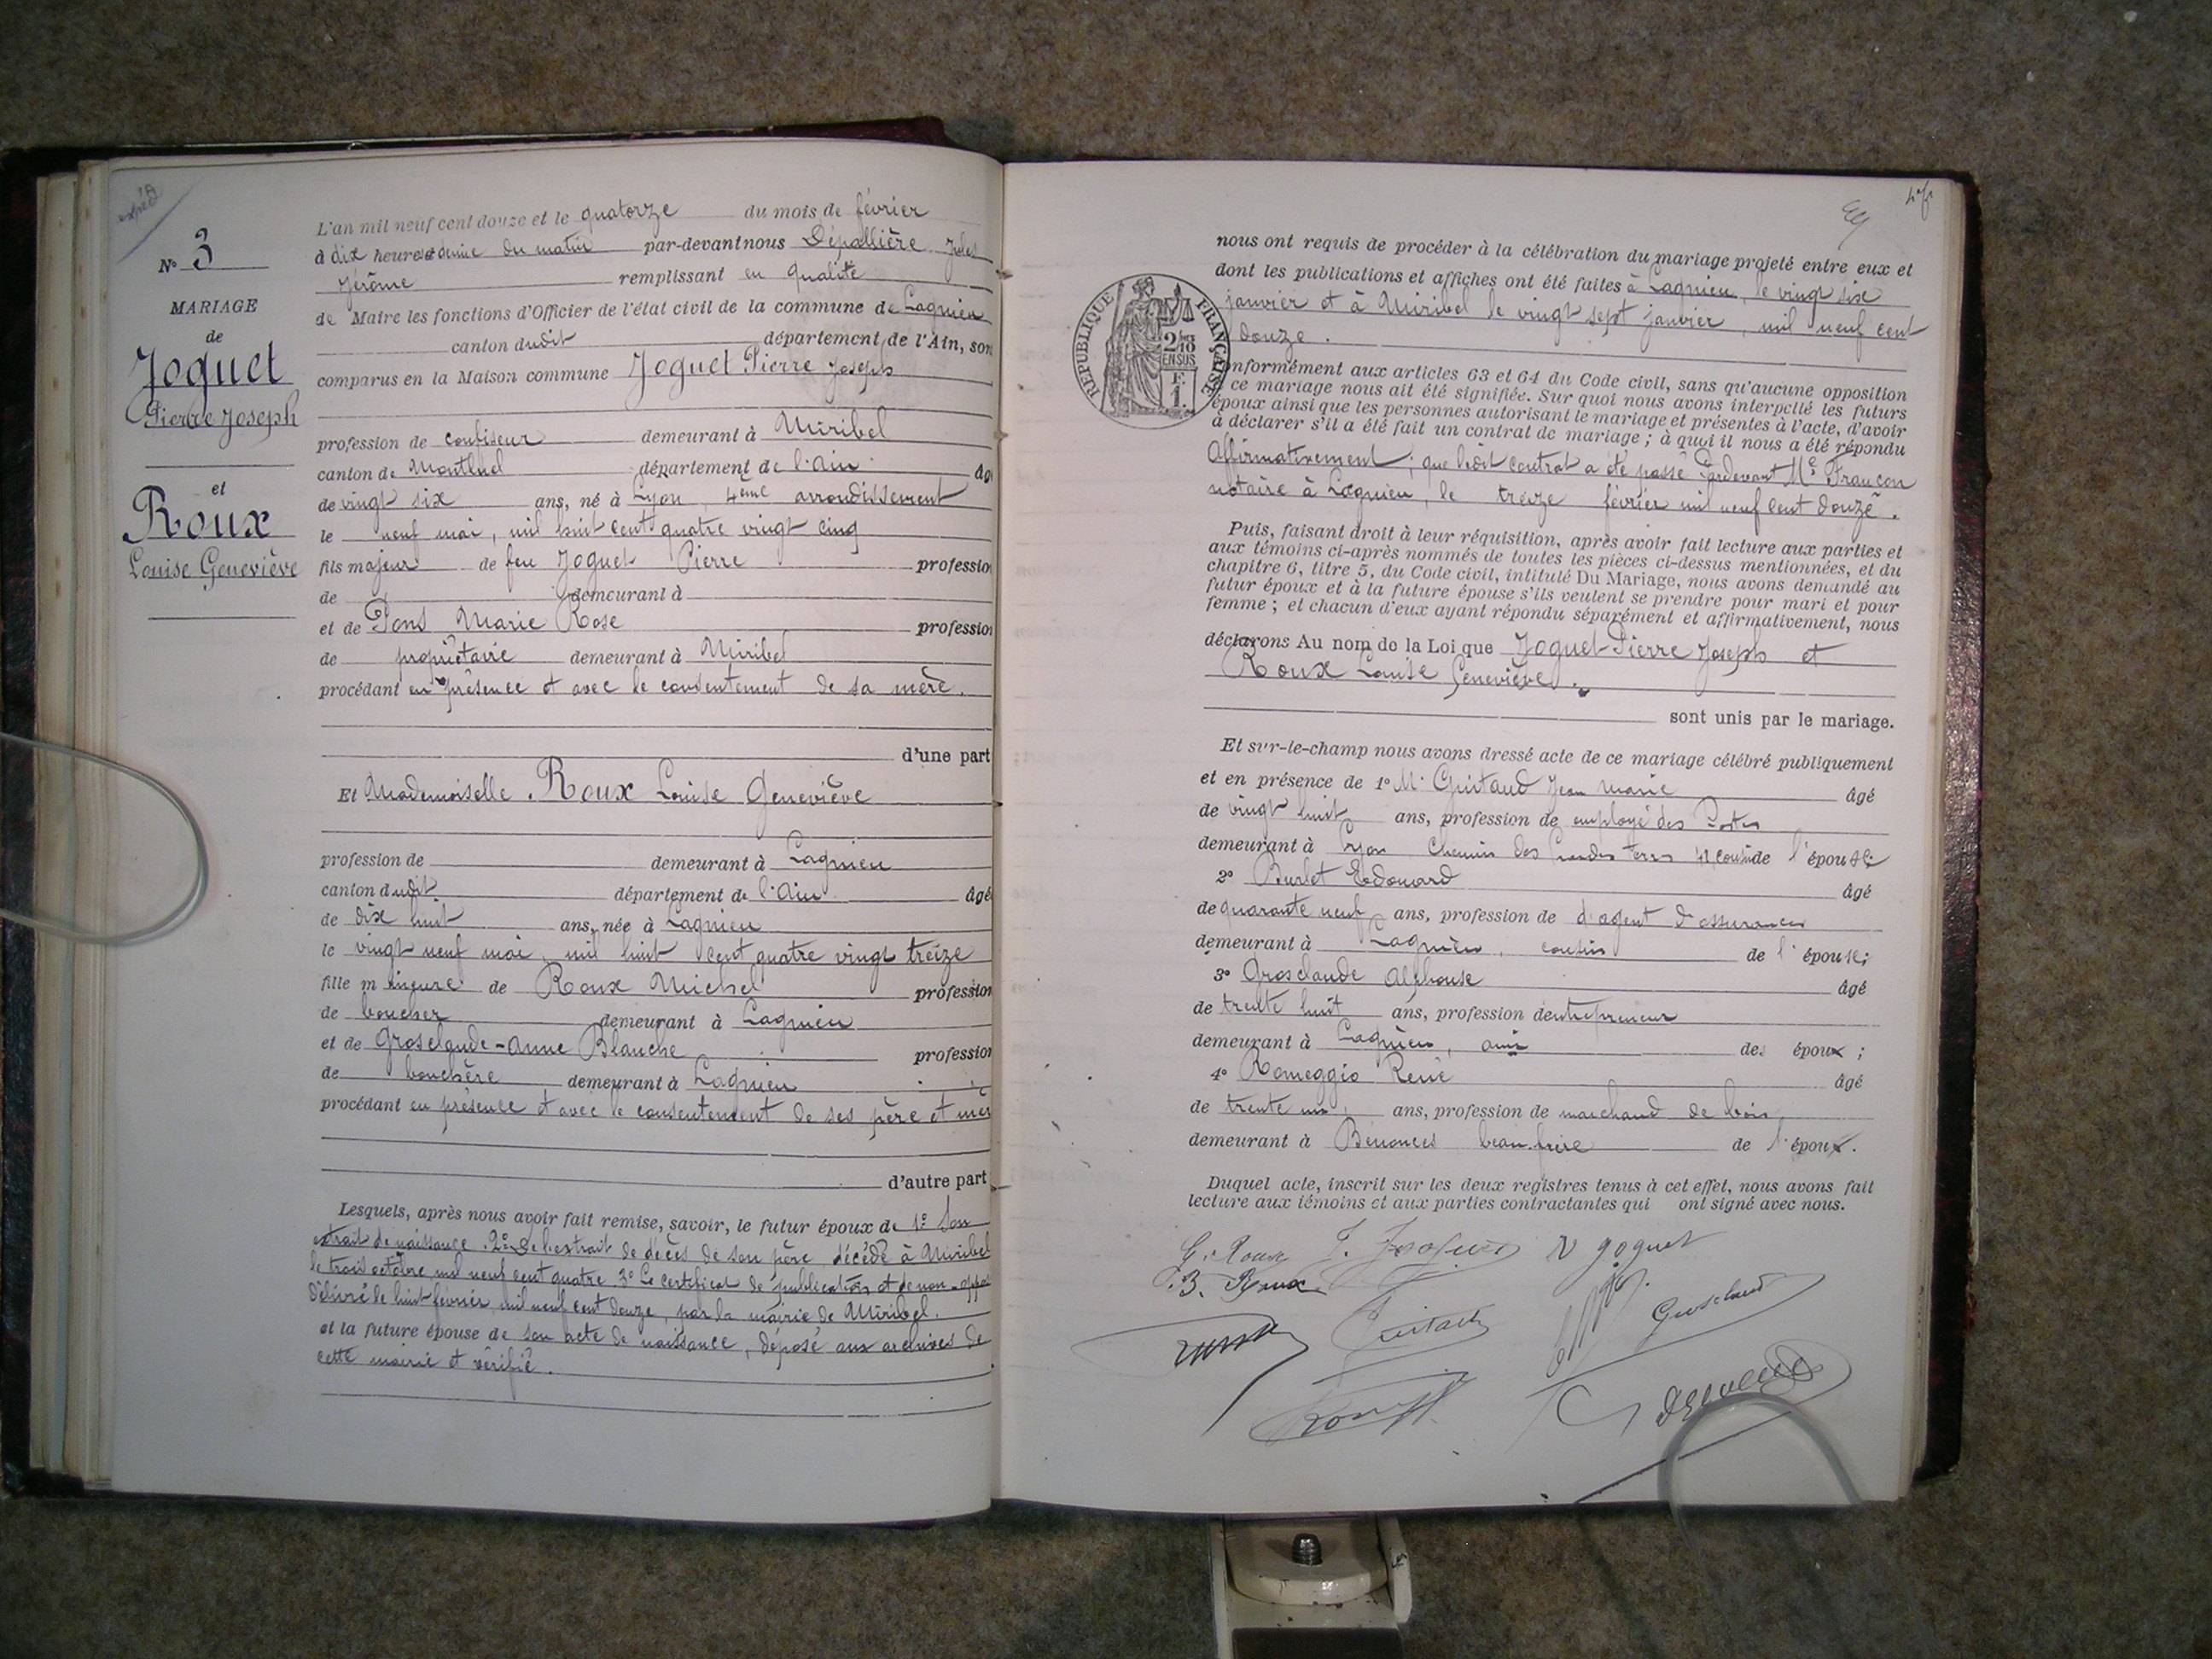 expéd
N° 3
MARIAGE
de
Joguet
Pierre Joseph
et
Roux
Louise Geneviève
L'an mil neuf cent douze et le quatorze du mois de février
à dix heures et demie du matin par-devant nous Dépallière Jules
Jérôme remplissant en qualité
de Maire les fonctions d'Officier de l'état civil de la commune de Lagnieu
canton dudit département de l'Ain, son
comparus en la Maison commune Joguet Pierre Joseph
profession de confiseur demeurant à Miribel
canton de Montluel département de l'Ain âg
de vingt six ans, né à Lyon, 4ème arrondissement
le neuf mai, mil huit cent quatre vingt cinq
fils majeur de feu Joguet Pierre profession
de demeurant à
et de Pons Marie Rose profession
de propriétaire demeurant à Miribel
procédant en présence et avec le consentement de sa mère.
d'une part
Et Mademoiselle Roux Louise Geneviève
profession de demeurant à Lagnieu
canton dudit département de l'Ain âgé
de dix huit ans, née à Lagnieu
le vingt neuf mai, mil huit cent quatre vingt treize
fille mineure de Roux Michel profession
de boucher demeurant à Lagnieu
et de Grosclaude-Anne Blanche profession
de bouchère demeurant à Lagnieu
procédant en présence et avec le consentement de ses père et mèr
d'autre part
Lesquels, après nous avoir fait remise, savoir, le futur époux de 1° Son
extrait de naissance. 2° De l'extrait de décès de son père décédé à Miribel
le trois octobre mil neuf cent quatre 3° Le certificat de publication et de non-oppo
délivré le huit février, mil neuf cent douze, par la mairie de Miribel.
et la future épouse de son acte de naissance, déposé aux archives de
cette mairie et vérifié.
nous ont requis de procéder à la célébration du mariage projeté entre eux et
dont les publications et affiches ont été faites à Lagnieu, le vingt six
janvier et à Miribel le vingt sept janvier, mil neuf cent
douze.
RÉPUBLIQUE FRANÇAISE
2/10
EN SUS
F.
1.
onformément aux articles 63 et 64 du Code civil, sans qu'aucune opposition
ce mariage nous ait été signifiée. Sur quoi nous avons interpellé les futurs
époux ainsi que les personnes autorisant le mariage et présentes à l'acte, d'avoir
à déclarer s'il a été fait un contrat de mariage ; à quoi il nous a été répondu
affirmativement ; que ledit contrat a été passé Pardevant Me Françon
notaire à Lagnieu, le treize février mil neuf cent douze.
Puis, faisant droit à leur réquisition, après avoir fait lecture aux parties et
aux témoins ci-après nommés de toutes les pièces ci-dessus mentionnées, et du
chapitre 6, titre 5, du Code civil, intitulé Du Mariage, nous avons demandé au
futur époux et à la future épouse s'ils veulent se prendre pour mari et pour
femme ; et chacun d'eux ayant répondu séparément et affirmativement, nous
déclarons Au nom de la Loi que Joguet Pierre Joseph et
Roux Louise Geneviève.
sont unis par le mariage.
Et sur-le-champ nous avons dressé acte de ce mariage célébré publiquement
et en présence de 1° M. Guitaud Jean Marie âgé
de vingt huit ans, profession de employé des Postes
demeurant à Lyon Chemin des Grandes terres 41, cousin de l'épouse
2° Burlet Edouard âgé
de quarante neuf ans, profession de d'agent d'assurances
demeurant à Lagnieu, cousin de l'épouse;
3° Grosclaude Alphonse âgé
de trente huit ans, profession d'entrepreneur
demeurant à Lagnieu, ami des époux ;
4° Romeggio René âgé
de trente un, ans, profession de marchand de bois,
demeurant à Bénonces beau-frère de l'époux.
Duquel acte, inscrit sur les deux registres tenus à cet effet, nous avons fait
lecture aux témoins et aux parties contractantes qui ont signé avec nous.
G. Roux J. Joguet V Joguet
B. Roux
Guitaud Grosclaude